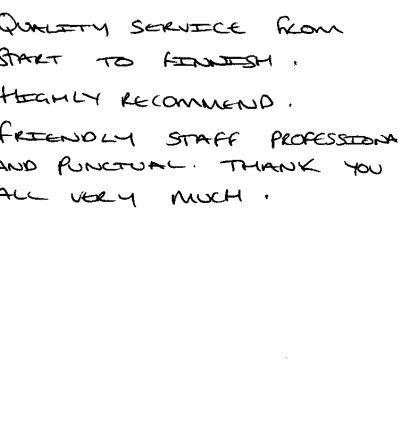 QUALITY SERVICE FROM
START TO FINNISH.
HIGHLY RECOMMEND.
FRIENDLY STAFF PROFESSIONA
AND PUNCTUAL. THANK YOU
ALL VERY MUCH.